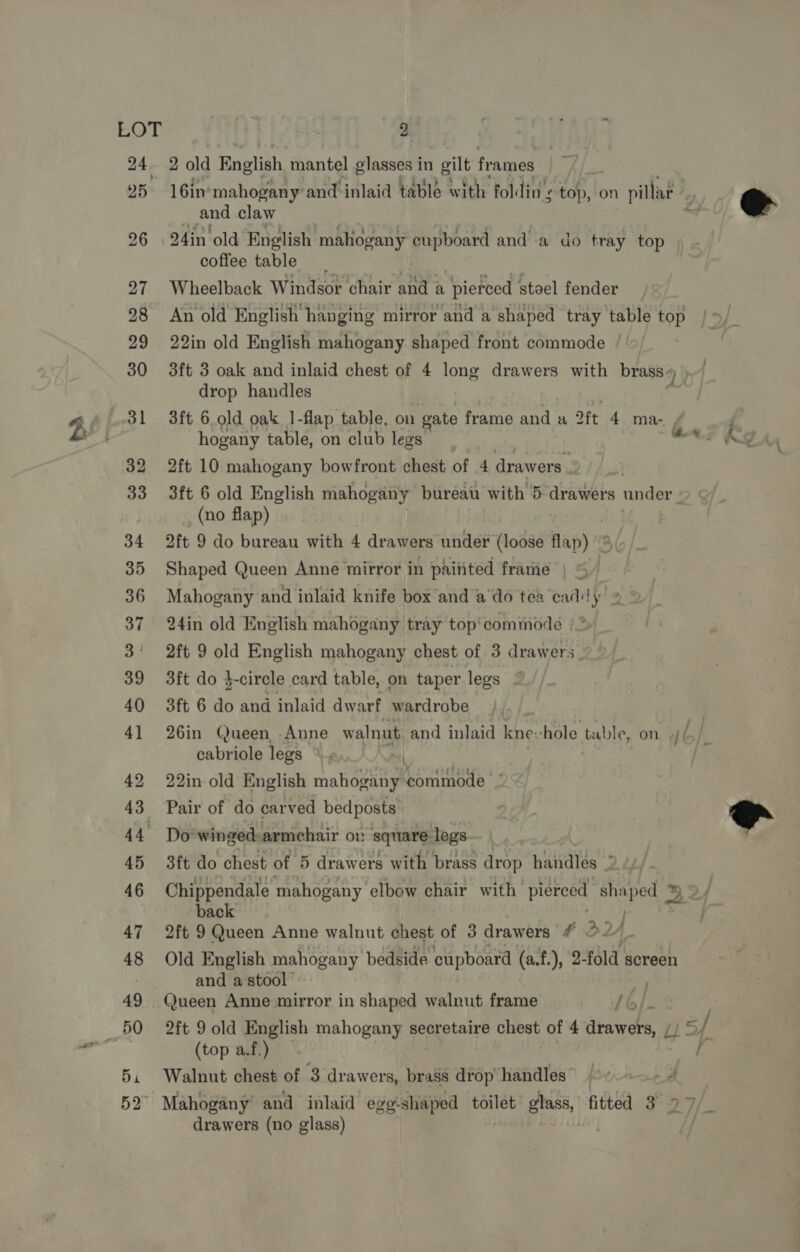 LOT 2
24 2 old English mantel glasses in gilt frames
25 16in mahogany and inlaid table with folding top, on pillar
and claw
26 24in old English mahogany cupboard and a do tray top
coffee table
27 Wheelback Windsor chair and a pierced steel fender
28 An old English hanging mirror and a shaped tray table top
29 22in old English mahogany shaped front commode
30 3ft 3 oak and inlaid chest of 4 long drawers with brass
drop handles
31 3ft 6 old oak 1-flap table, on gate frame and a 2ft 4 ma-
hogany table, on club legs
32 2ft 10 mahogany bowfront chest of 4 drawers
33 3ft 6 old English mahogany bureau with 5 drawers under
(no flap)
34 2ft 9 do bureau with 4 drawers under (loose flap)
35 Shaped Queen Anne mirror in painted frame
36 Mahogany and inlaid knife box and a do tea caddy
37 24in old English mahogany tray top commode
3 2ft 9 old English mahogany chest of 3 drawers
39 3ft do ½-circle card table, on taper legs
40 3ft 6 do and inlaid dwarf wardrobe
41 26in Queen Anne walnut and inlaid kneehole table, on
cabriole legs
42 22in old English mahogany commode
43 Pair of do carved bedposts
44 Do winged armchair on square legs
45 3ft do chest of 5 drawers with brass drop handles
46 Chippendale mahogany elbow chair with pierced shaped
back
47 2ft 9 Queen Anne walnut chest of 3 drawers
48 Old English mahogany bedside cupboard (a.f.), 2-fold screen
and a stool
49 Queen Anne mirror in shaped walnut frame
50 2ft 9 old English mahogany secretaire chest of 4 drawers,
(top a.f.)
51 Walnut chest of 3 drawers, brass drop handles
52 Mahogany and inlaid egg-shaped toilet glass, fitted 3
drawers (no glass)